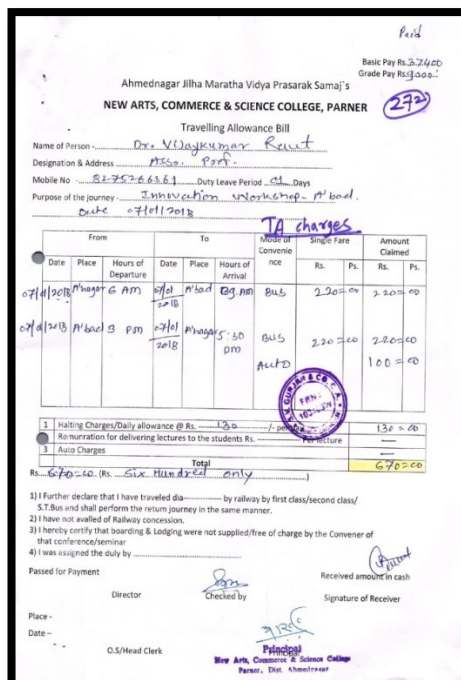 Paid
Basic Pay Rs.37400
Grade Pay Rs.9000
Ahmednagar Jilha Maratha Vidya Prasarak Samaj's
NEW ARTS, COMMERCE & SCIENCE COLLEGE, PARNER
272
Travelling Allowance Bill
Name of Person - Dr. Vijaykumar Raut
Designation & Address Asso. Prof.
Mobile No 8275266361 Duty Leave Period 01 Days
Purpose of the journey - Innovation Workshop- A'bad.
Date 07/01/2018
TA charges
From To Mode of Convenie nce Single Fare Amount Claimed
Date Place Hours of Departure Date Place Hours of Arrival Rs. Ps. Rs. Ps.
07/01/2018 A'nagar 6 AM 07/01/2018 A'bad 09.AM Bus 220=00 220=00
07/01/2018 A'bad 3 pm 07/01/2018 A'nagar 5:30 pm Bus 220=00 220=00
Auto 100=00
1 Halting Charges/Daily allowance @ Rs. 130 /- per 130=00
2 Remunration for delivering lectures to the students Rs. Per lecture —
3 Auto Charges —
Total 670=00
Rs. 670=00 (Rs. Six Hundred only )
1) I Further declare that I have traveled dia------------ by railway by first class/second class/
S.T.Bus and shall perform the return journey in the same manner.
2) I have not availed of Railway concession.
3) I hereby certify that boarding & Lodging were not supplied/free of charge by the Convener of
that conference/seminar
4) I was assigned the duly by
Passed for Payment Received amount in cash
Director Checked by Signature of Receiver
Place -
Date –
O.S/Head Clerk Principal
Principal
New Arts, Commerce & Science College
Parner, Dist. Ahmednagar